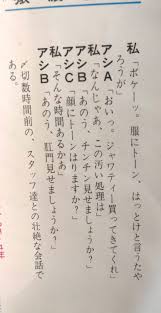 私「ボケーッ。服にトーン、はっとけと言うたや
ろうが」
アシA「おいっ。ジャッティー買ってきてくれ」
私「なんじゃあ、この汚い処理は」
アシB「あのう、チンチン見せましょうか?」
アシC「顔にトーンはりますか?」
私「そんな時間あるかあ」
アシB「あのう、肛門見せましょうか?」
〆切数時間前の、スタッフ達との壮絶な会話で
ある。